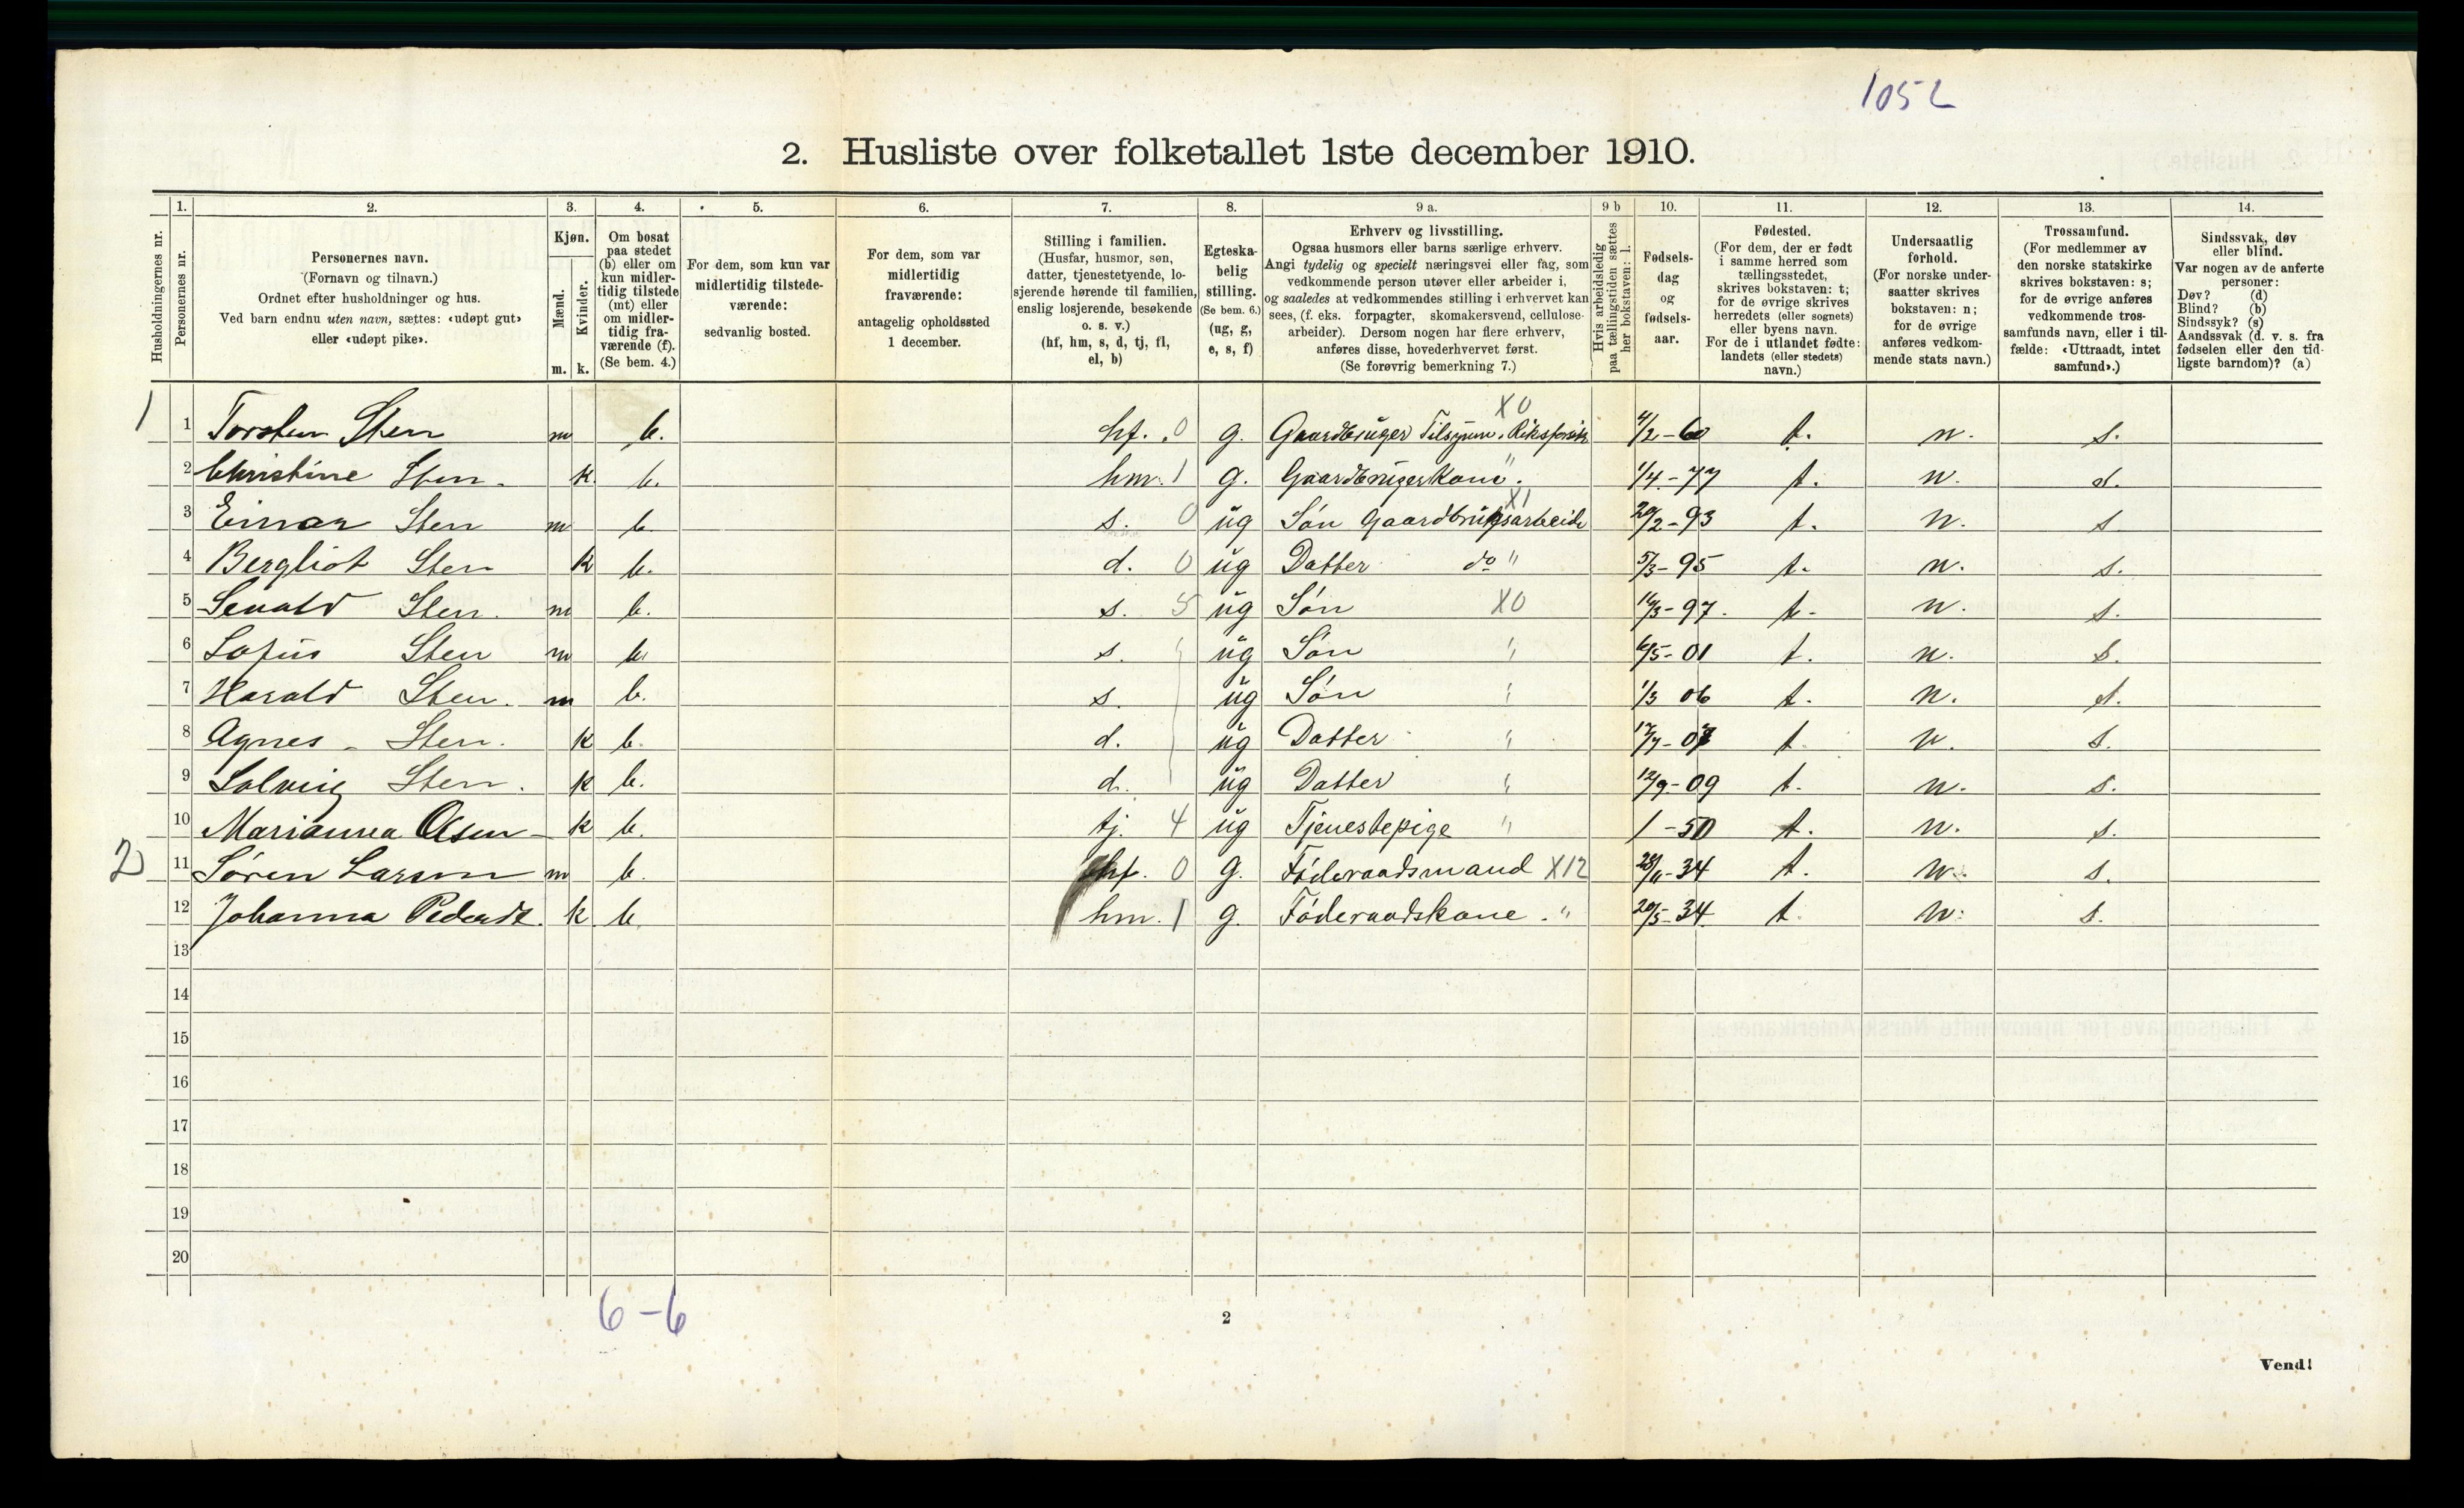 1052
2. Husliste over folketallet 1ste december 1910.
Husholdningernes nr.
1. Personernes nr.
2. Personernes navn.
(Fornavn og tilnavn.)
Ordnet efter husholdninger og hus.
Ved barn endnu uten navn, sættes: «udøpt gut»
eller «udøpt pike».
3. Kjøn.
Mænd. m.
Kvinder. k.
4. Om bosat
paa stedet
(b) eller om
kun midler-
tidig tilstede
(mt) eller
om midler-
tidig fra-
værende (f).
(Se bem. 4.)
5. For dem, som kun var
midlertidig tilstede-
værende:
sedvanlig bosted.
6. For dem, som var
midlertidig
fraværende:
antagelig opholdssted
1 december.
7. Stilling i familien.
(Husfar, husmor, søn,
datter, tjenestetyende, lo-
sjerende hørende til familien,
enslig losjerende, besøkende
o. s. v.)
(hf, hm, s, d, tj, fl,
el, b)
8. Egteska-
belig
stilling.
(Se bem. 6.)
(ug, g,
e, s, f)
9 a. Erhverv og livsstilling.
Ogsaa husmors eller barns særlige erhverv.
Angi tydelig og specielt næringsvei eller fag, som
vedkommende person utøver eller arbeider i,
og saaledes at vedkommendes stilling i erhvervet kan
sees, (f. eks. forpagter, skomakersvend, cellulose-
arbeider). Dersom nogen har flere erhverv,
anføres disse, hovederhvervet først.
(Se forøvrig bemerkning 7.)
9 b Hvis arbeidsledig
paa tællingstiden sættes
her bokstaven: l.
10. Fødsels-
dag
og
fødsels-
aar.
11. Fødested.
(For dem, der er født
i samme herred som
tællingsstedet,
skrives bokstaven: t;
for de øvrige skrives
herredets (eller sognets)
eller byens navn.
For de i utlandet fødte:
landets (eller stedets)
navn.)
12. Undersaatlig
forhold.
(For norske under-
saatter skrives
bokstaven: n;
for de øvrige
anføres vedkom-
mende stats navn.)
13. Trossamfund.
(For medlemmer av
den norske statskirke
skrives bokstaven: s;
for de øvrige anføres
vedkommende tros-
samfunds navn, eller i til-
fælde: «Uttraadt, intet
samfund».)
14. Sindssvak, døv
eller blind.
Var nogen av de anførte
personer:
Døv? (d)
Blind? (b)
Sindssyk? (s)
Aandssvak (d. v. s. fra
fødselen eller den tid-
ligste barndom)? (a)
X0
1 1 Torsten Sten m b. hf. 0 g. Gaardbruger Tilsynsm. Riksforsik 4/2-60 t. n. s.
2 Christine Sten k. b. hm. 1 g. Gaardbrugerkone " 1/4-77 t. n. s.
X1
3 Einar Sten m b. s. 0 ug Søn Gaardbrugsarbeide 20/2-93 t. n. s
4 Bergliot Sten k b. d. 0 ug Datter do " 5/3-95 t. n. s.
5 Sevald Sten. m b. s. 5 ug Søn X0 16/3-97. t. n. s.
6 Sofus Sten m b. s. ug Søn " 6/5-01 t. n. s.
7 Harald Sten. m b. s. ug Søn " 1/3 06 t. n. s.
8 Agnes Sten. k b. d. ug Datter " 17/7-07 t n. s.
9 Solveig Sten. k b. d. ug Datter " 12/9-09 t. n. s.
10 Marianna Olsen k b. tj. 4 ug Tjenestepige " 1 -50 t. n. s.
2 11 Søren Larsen m b. hf. 0 g. Føderaadsmand X12 28/11-34 t. n. s.
12 Johanna Pedersdt. k b. hm. 1 g. Føderaadskone. " 20/5-34 t n. s.
13
14
15
16
17
18
19
20
6-6
2
Vend!